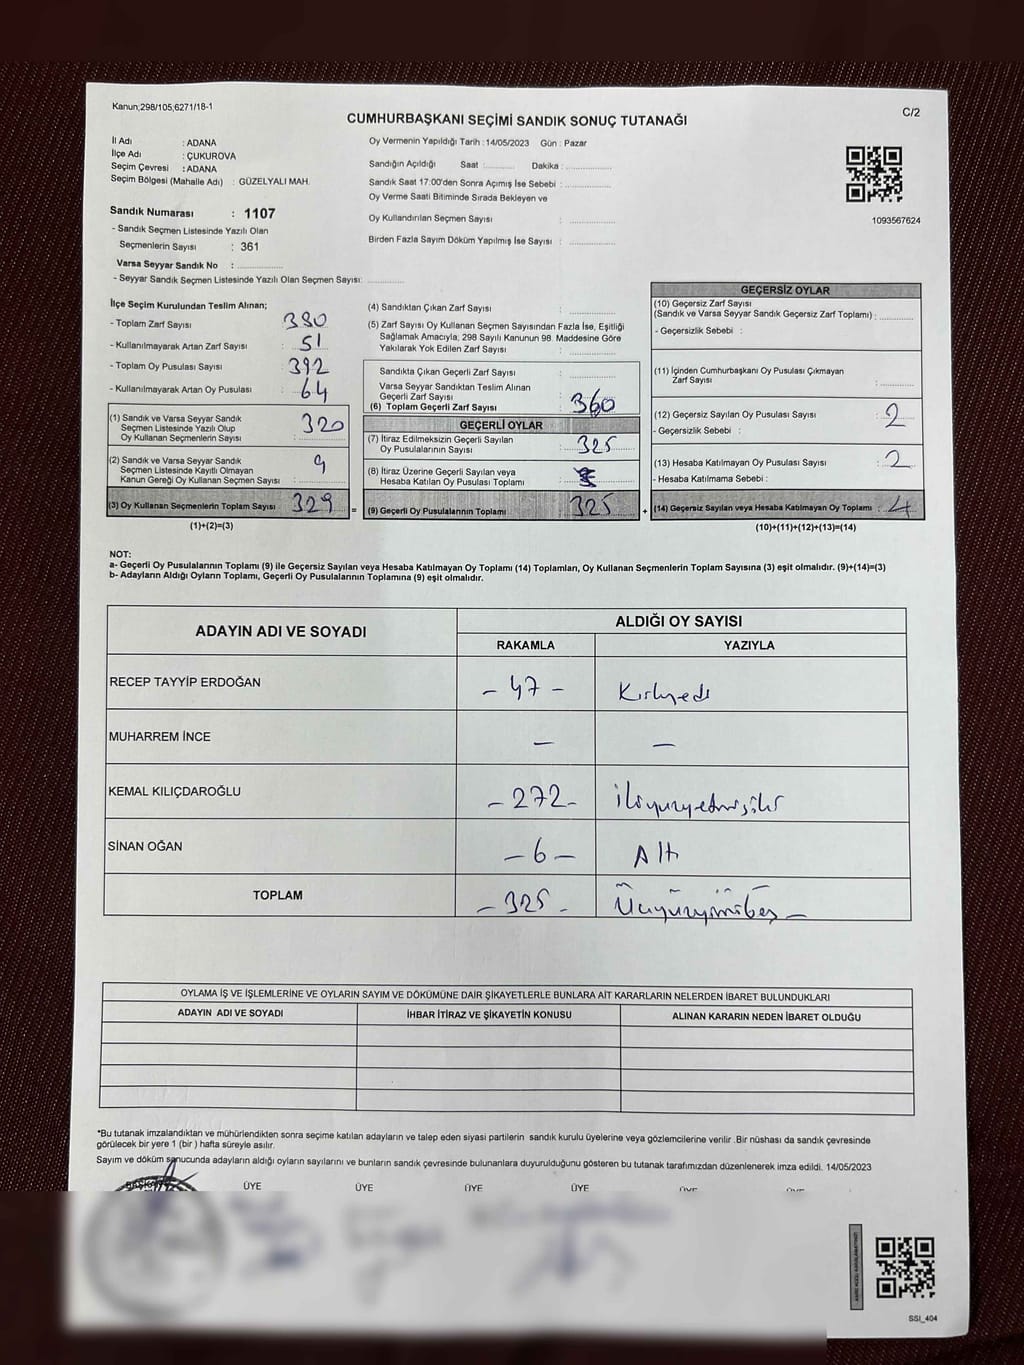 Kanun;298/105,6271/18-1
C/2
CUMHURBAŞKANI SEÇİMİ SANDIK SONUÇ TUTANAĞI
İl Adı : ADANA
İlçe Adı : ÇUKUROVA
Seçim Çevresi : ADANA
Seçim Bölgesi (Mahalle Adı) : GÜZELYALI MAH.
Oy Vermenin Yapıldığı Tarih : 14/05/2023 Gün : Pazar
Sandığın Açıldığı Saat : Dakika :
Sandık Saat 17:00'den Sonra Açımış İse Sebebi :
Oy Verme Saati Bitiminde Sırada Bekleyen ve
Oy Kullandırılan Seçmen Sayısı :
Birden Fazla Sayım Döküm Yapılmış İse Sayısı :
1093567624
Sandık Numarası : 1107
- Sandık Seçmen Listesinde Yazılı Olan
Seçmenlerin Sayısı : 361
Varsa Seyyar Sandık No :
- Seyyar Sandık Seçmen Listesinde Yazılı Olan Seçmen Sayısı:
İlçe Seçim Kurulundan Teslim Alınan;
- Toplam Zarf Sayısı : 380
- Kullanılmayarak Artan Zarf Sayısı : 51
- Toplam Oy Pusulası Sayısı : 392
- Kullanılmayarak Artan Oy Pusulası : 64
(1) Sandık ve Varsa Seyyar Sandık
Seçmen Listesinde Yazılı Olup
Oy Kullanan Seçmenlerin Sayısı : 320
(2) Sandık ve Varsa Seyyar Sandık
Seçmen Listesinde Kayıtlı Olmayan
Kanun Gereği Oy Kullanan Seçmen Sayısı : 9
(3) Oy Kullanan Seçmenlerin Toplam Sayısı : 329 =
(1)+(2)=(3)
(4) Sandıktan Çıkan Zarf Sayısı :
(5) Zarf Sayısı Oy Kullanan Seçmen Sayısından Fazla İse, Eşitliği
Sağlamak Amacıyla, 298 Sayılı Kanunun 98. Maddesine Göre
Yakılarak Yok Edilen Zarf Sayısı :
Sandıkta Çıkan Geçerli Zarf Sayısı :
Varsa Seyyar Sandıktan Teslim Alınan
Geçerli Zarf Sayısı :
(6) Toplam Geçerli Zarf Sayısı : 360
GEÇERLİ OYLAR
(7) İtiraz Edilmeksizin Geçerli Sayılan
Oy Pusulalarının Sayısı : 325
(8) İtiraz Üzerine Geçerli Sayılan veya
Hesaba Katılan Oy Pusulası Toplamı :
(9) Geçerli Oy Pusulalarının Toplamı : 325 +
GEÇERSİZ OYLAR
(10) Geçersiz Zarf Sayısı
(Sandık ve Varsa Seyyar Sandık Geçersiz Zarf Toplamı) :
- Geçersizlik Sebebi :
(11) İçinden Cumhurbaşkanı Oy Pusulası Çıkmayan
Zarf Sayısı :
(12) Geçersiz Sayılan Oy Pusulası Sayısı : 2
- Geçersizlik Sebebi :
(13) Hesaba Katılmayan Oy Pusulası Sayısı : 2
- Hesaba Katılmama Sebebi :
(14) Geçersiz Sayılan veya Hesaba Katılmayan Oy Toplamı : 4
(10)+(11)+(12)+(13)=(14)
NOT:
a- Geçerli Oy Pusulalarının Toplamı (9) ile Geçersiz Sayılan veya Hesaba Katılmayan Oy Toplamı (14) Toplamları, Oy Kullanan Seçmenlerin Toplam Sayısına (3) eşit olmalıdır. (9)+(14)=(3)
b- Adayların Aldığı Oyların Toplamı, Geçerli Oy Pusulalarının Toplamına (9) eşit olmalıdır.
ADAYIN ADI VE SOYADI
ALDIĞI OY SAYISI
RAKAMLA YAZIYLA
RECEP TAYYİP ERDOĞAN - 47 - Kırkyedi
MUHARREM İNCE - -
KEMAL KILIÇDAROĞLU - 272 - ikiyüzyetmişiki
SİNAN OĞAN - 6 - Altı
TOPLAM - 325 - Üçyüzyirmibeş -
OYLAMA İŞ VE İŞLEMLERİNE VE OYLARIN SAYIM VE DÖKÜMÜNE DAİR ŞİKAYETLERLE BUNLARA AİT KARARLARIN NELERDEN İBARET BULUNDUKLARI
ADAYIN ADI VE SOYADI İHBAR İTİRAZ VE ŞİKAYETİN KONUSU ALINAN KARARIN NEDEN İBARET OLDUĞU
*Bu tutanak imzalandıktan ve mühürlendikten sonra seçime katılan adayların ve talep eden siyasi partilerin sandık kurulu üyelerine veya gözlemcilerine verilir .Bir nüshası da sandık çevresinde
görülecek bir yere 1 (bir ) hafta süreyle asılır.
Sayım ve döküm sonucunda adayların aldığı oyların sayılarını ve bunların sandık çevresinde bulunanlara duyurulduğunu gösteren bu tutanak tarafımızdan düzenlenerek imza edildi. 14/05/2023
BAŞKAN ÜYE ÜYE ÜYE ÜYE ÜYE ÜYE
SSI_404